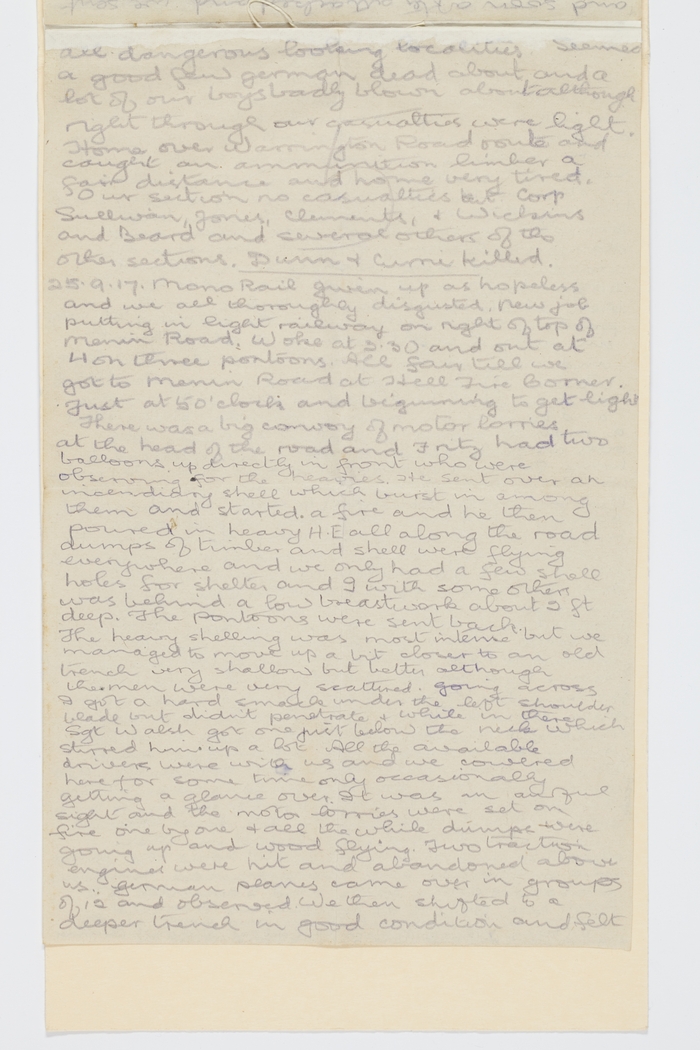 are dangerous looking localities. Seemed
a good few german dead about and a
lot of our boys badly blown about although
right through our casualties were light.
Home over Warrington Road route and
caught an ammunition limber a
fair distance and home very tired.
Our section no casualties but Corp
Sullivan, Jones, Clements, & Wickins
and Beard and several others of the
other sections. Dunn & Currie killed.
25.9.17. Mono Rail given up as hopeless
and we all thoroughly disgusted. New job
putting in light railway on right of top of
Menin Road. Woke at 2.30 and out at
4 on three pontoons. All fair till we
got to Menin Road at Hell Fire Corner.
Just at 5 O'clock and beginning to get light
There was a big convoy of motor lorries
at the head of the road and Fritz had two
balloons up directly in front who were
observing for the heavies. He sent over an
incendiary shell which burst in among
them and started a fire and he then
poured in heavy H.E all along the road
dumps of timber and shell were flying
everywhere and we only had a few shell
holes for shelter and I with some others
was behind a low breastwork about 2 ft
deep. The pontoons were sent back.
The heavy shelling was most intense but we
managed to move up a bit closer to an old
trench very shallow but better although
the men were very scattered. going across
I got a hard smack under the left shoulder
blade but didn't penetrate & while in there
Sgt Walsh got one just below the neck which
stirred him up a lot. All the available
drivers were with us and we cowered
here for some time only occasionally
getting a glance over. It was an awful
sight and the motor lorries were set on
fire one by one & all the while dumps were
going up and wood flying. Two traction
engines were hit and abandoned above
us. german planes came over in groups
of 12 and observed. We then shifted to a
deeper trench in good condition and felt